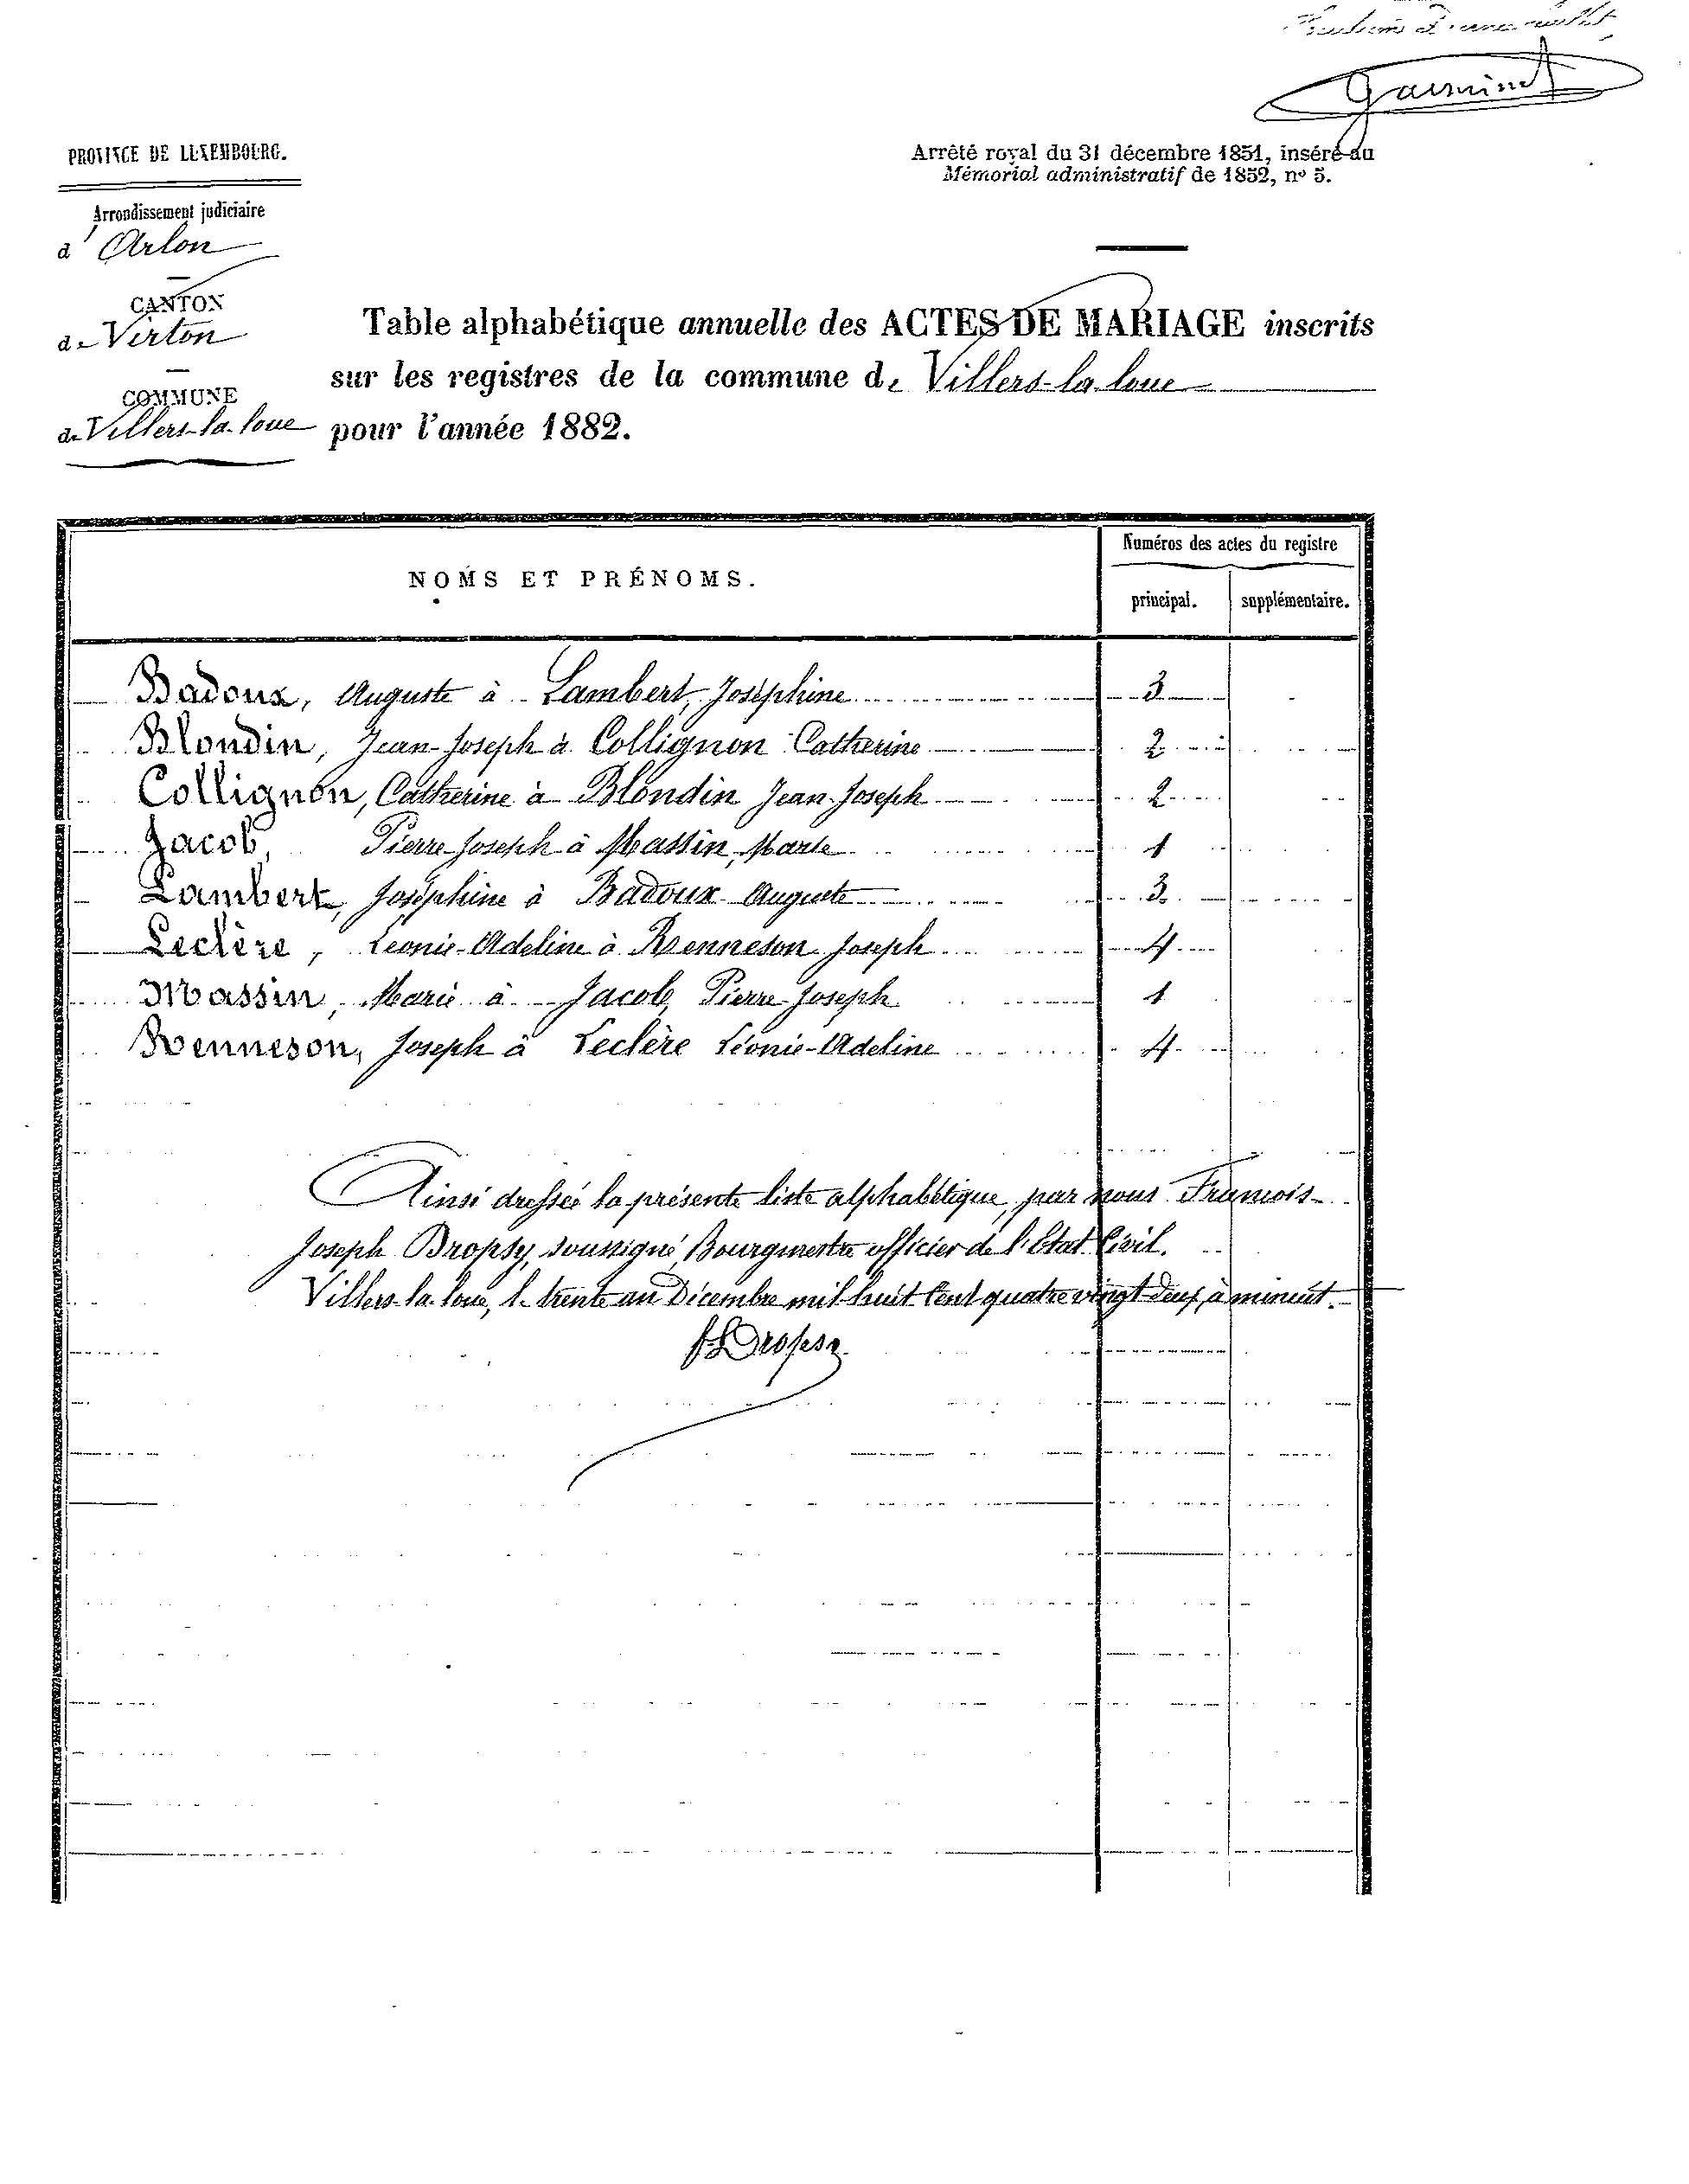 Garmind
PROVINCE DE LUXEMBOURG.
Arrondissement judiciaire
d'Arlon
CANTON
de Virton
COMMUNE
de Villers-la-loue
Arrêté royal du 31 décembre 1851, inséré au
Mémorial administratif de 1852, nº 5.
Table alphabétique annuelle des ACTES DE MARIAGE inscrits
sur les registres de la commune de Villers-la-loue
pour l'année 1882.
NOMS ET PRÉNOMS.
Numéros des actes du registre
principal. supplémentaire.
Badoux, Auguste à Lambert, Joséphine 3
Blondin, Jean-Joseph à Collignon Catherine 2
Collignon, Catherine à Blondin Jean-Joseph 2
Jacob, Pierre-Joseph à Massin, Marie 1
Lambert, Joséphine à Badoux Auguste 3
Leclère, Léonie-Adeline à Renneson Joseph 4
Massin, Marie à Jacob, Pierre-Joseph 1
Renneson, Joseph à Leclère Léonie-Adeline 4
Ainsi dressée la présente liste alphabétique, par nous François-
Joseph Dropsy, soussigné, Bourgmestre officier de l'Etat Civil.
Villers-la-loue, le trente un Décembre mil huit cent quatre vingt deux, à minuit.
f Dropsy